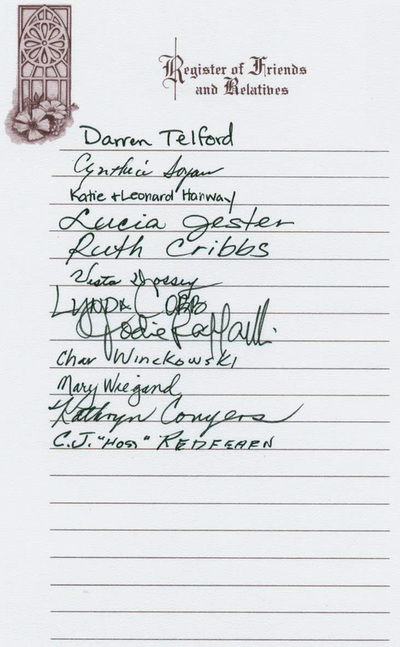 Register of Friends
and Relatives
Darren Telford
Cynthia
Katie + Leonard Hanway
Lucia Jester
Ruth Cribbs
Vesta Dossey
LYNDA COBB
Jodie Raffaelli
Char Winckowski
Mary Wiegand
Kathryn Conyers
C.J. "Hoss" REDFEARN